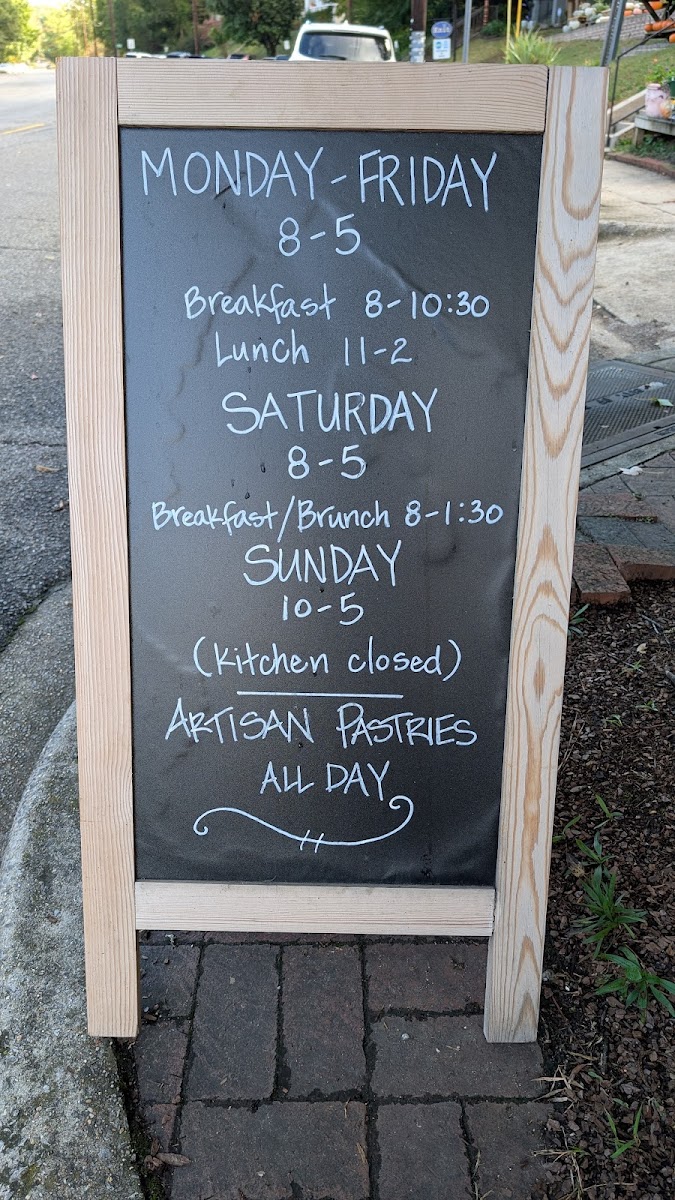 MONDAY-FRIDAY
8-5
Breakfast 8-10:30
Lunch 11-2
SATURDAY
8-5
Breakfast/Brunch 8-1:30
SUNDAY
10-5
(kitchen closed)
ARTISAN PASTRIES
ALL DAY